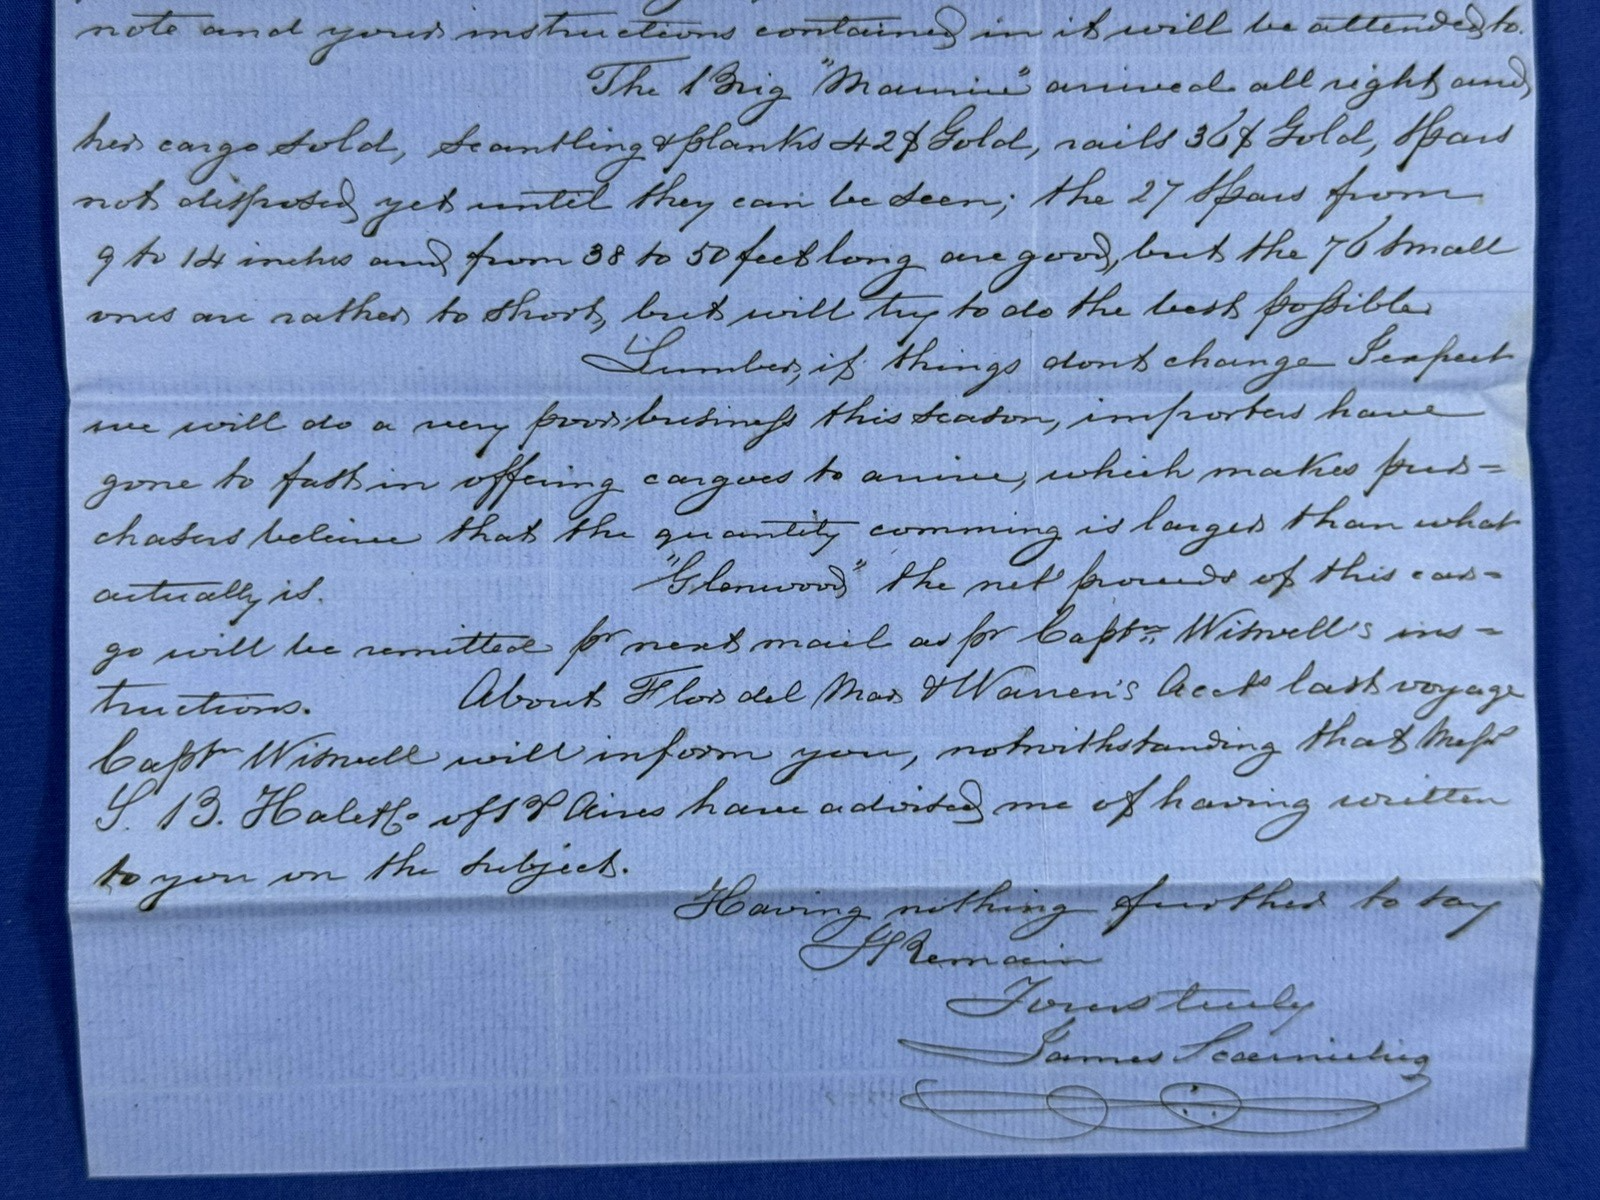 note and your instructions contained in it will be attended to.
The Brig "Maunie" arrived all right and
her cargo sold, scantling & planks 42$ Gold, rails 36$ Gold, Spars
not disposed yet until they can be seen; the 27 Spars from
9 to 14 inches and from 38 to 50 feet long are good, but the 76 small
ones are rather to short, but will try to do the best possible
Lumber, if things dont change I expect
we will do a very poor business this season, importers have
gone to fast in offering cargoes to arrive, which makes pur=
chasers believe that the quantity comming is larger than what
actually is. "Glenwood" the net proceeds of this car=
go will be remitted pr next mail as pr Captn. Wiswell's ins=
tructions. About Flor del Mar & Warren's Accts last voyage
Captn Wiswell will inform you, notwithstanding that Messrs
S. B. Hale & Co of Bs Aires have advised me of having written
to you on the subject.
Having nothing further to say
I Remain
Yours truly
James